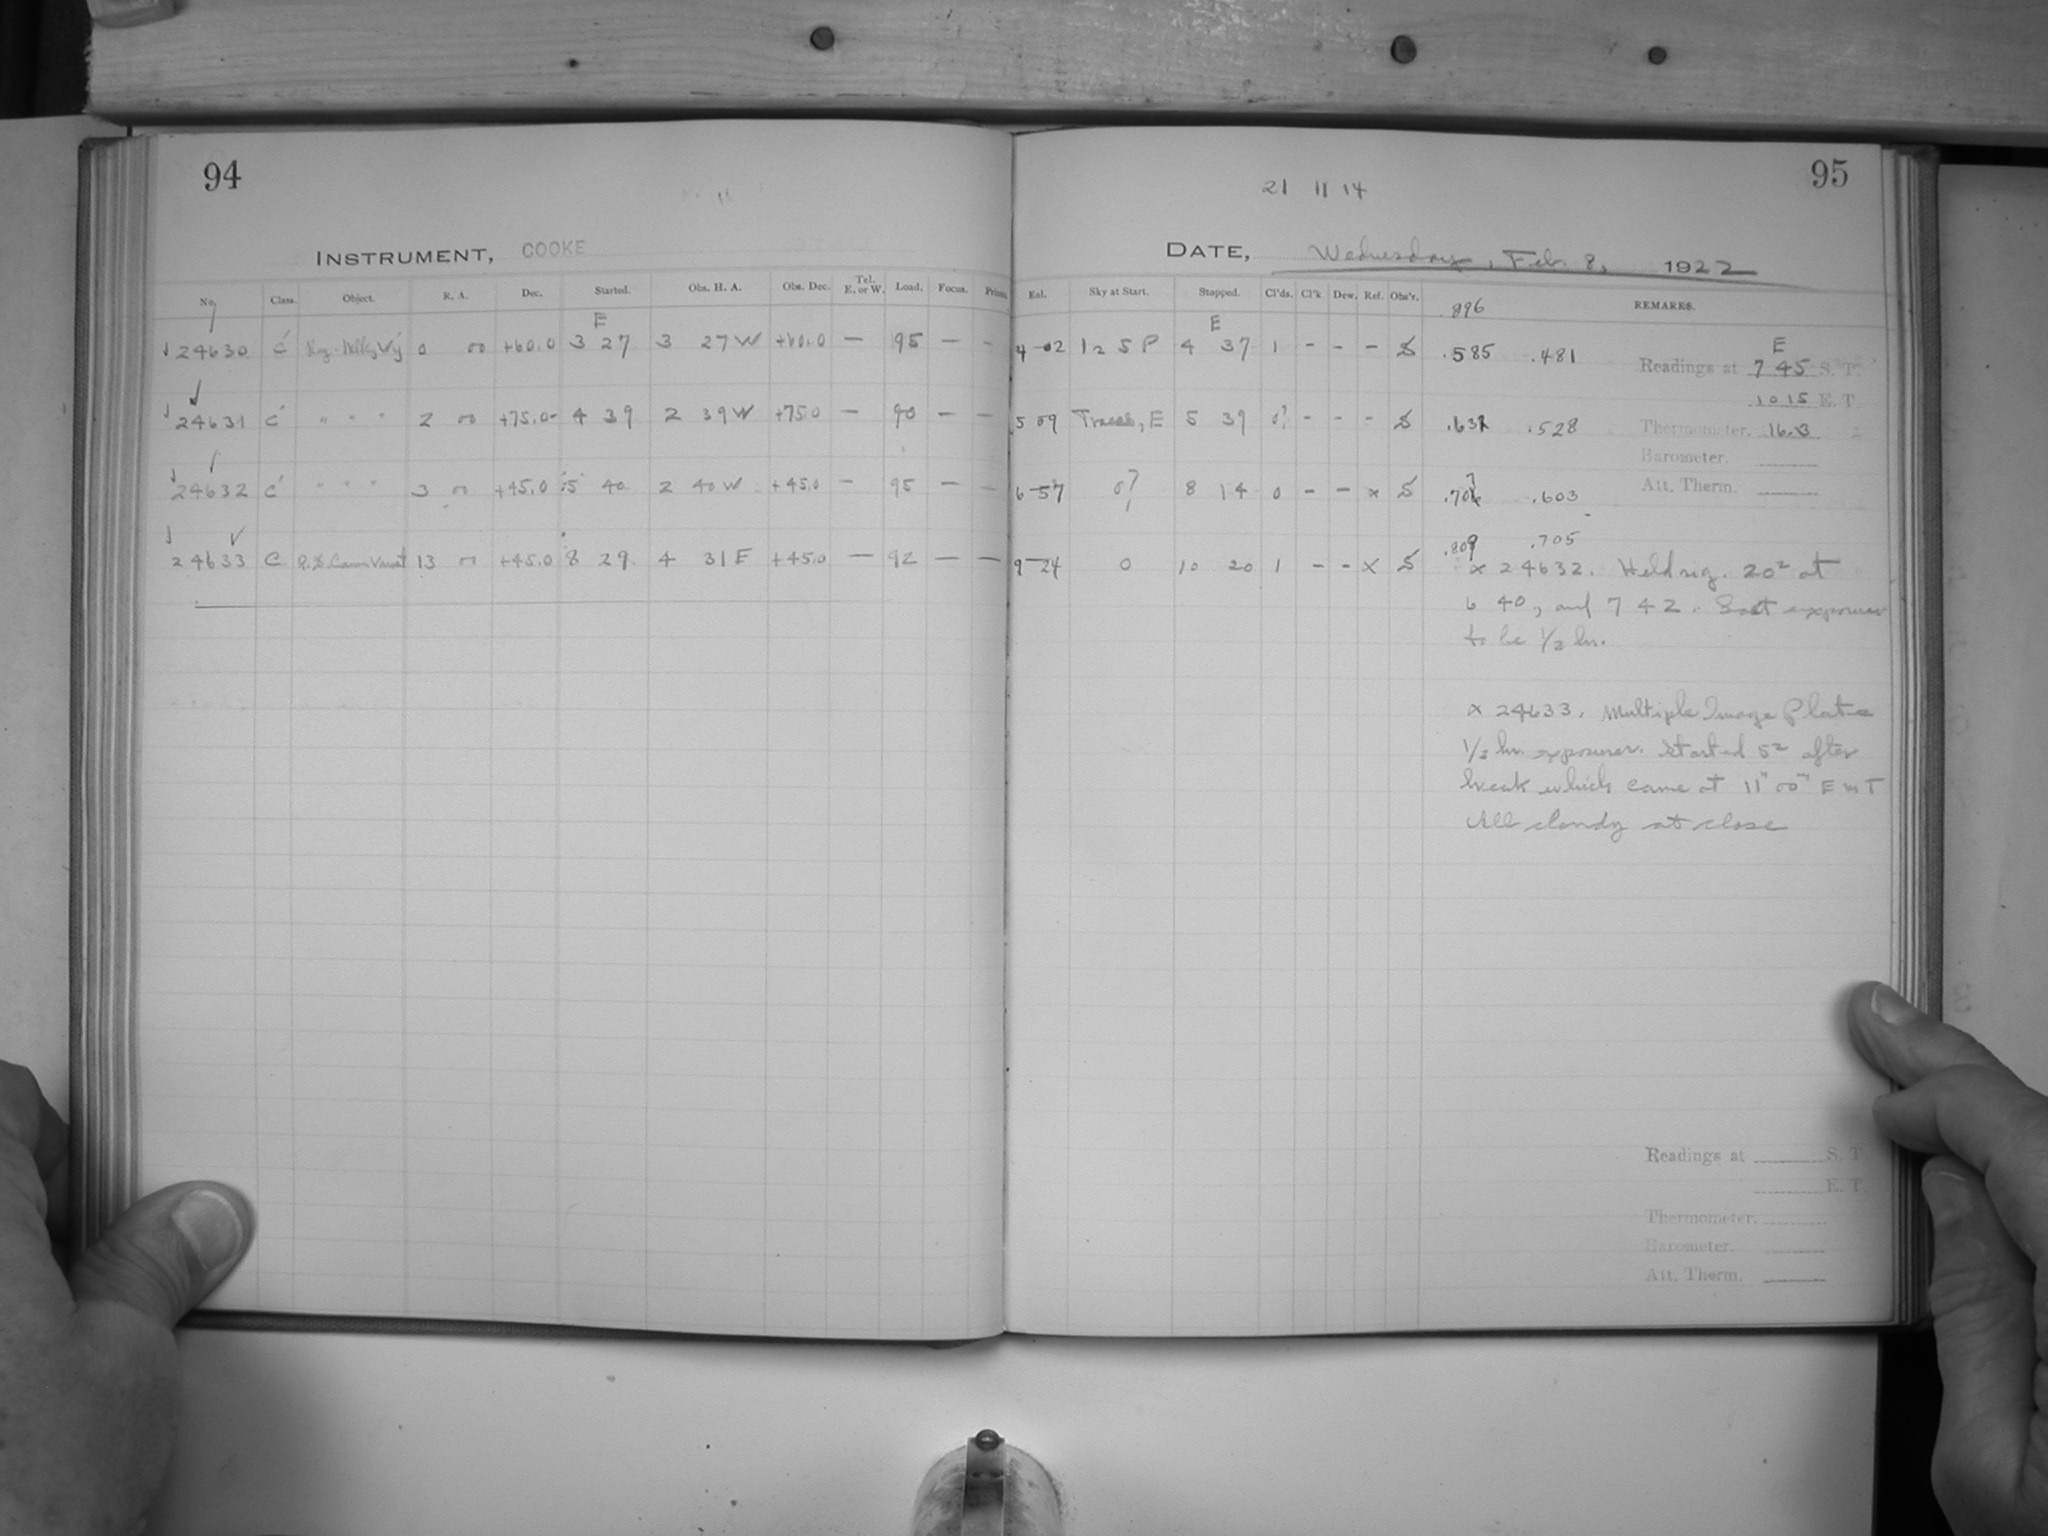 94
INSTRUMENT, COOKE
No. Class. Object. R. A. Dec. Started. Obs. H. A. Obs. Dec. Tel. E. or W. Load. Focus. Prism.
E
24630 C' Reg. Milky Wy 0 00 +60.0 3 27 3 27 W +60.0 — 95 — -
24631 C' " " " 2 00 +75.0 4 39 2 39 W +75.0 — 90 — —
24632 C' " " " 3 00 +45.0 5 40 2 40 W +45.0 — 95 — —
24633 C 13 00 +45.0 8 29 4 31 E +45.0 — 92 — —
95
21 11 14
DATE, Wednesday, Feb. 8, 1922
Exl. Sky at Start. Stopped. Cl'ds. Cl'k Dew. Ref. Obs'r. .896 REMARKS.
E
4 02 1 2 S P 4 37 1 - - - S .585 .481
E
Readings at 7 45 S. T.
10 15 E. T.
5 09 Trees, E 5 39 0? - - - S .528
Thermometer. 16.8
Barometer.
6 57 0? 8 14 0 - - x S .603
Att. Therm.
9 24 0 10 20 1 - - x S .809 .705
x 24632. Held rig. 20² at
6 40, and 7 42. exposures
to be 1/2 hr.
x 24633. Multiple Image Plate
hr. exposures. Started 5² after
break which came at 11ʰ 00ᵐ E M T
All cloudy at close
Readings at S. T.
E. T.
Thermometer.
Barometer.
Att. Therm.